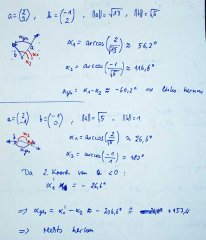 a = (2 3), b = (-1 2), ||a|| = √13, ||b|| = √5
α₁ = arccos(2/√13) ≈ 56,3°
α₂ = arccos(-1/√5) ≈ 116,6°
α₁ - α₂ ≈ -60,3° ⇒ links herum
a = (2 -1), b = (-1 0), ||a|| = √5, ||b|| = 1
α₁ = arccos(2/√5) ≈ 26,6°
α₂ = arccos(-1/1) = 180°
Da 2. Koord von a < 0:
α₁ = - 26,6°
⇒ = α₁ - α₂ ≈ - 206,6°
⇒ rechts herum